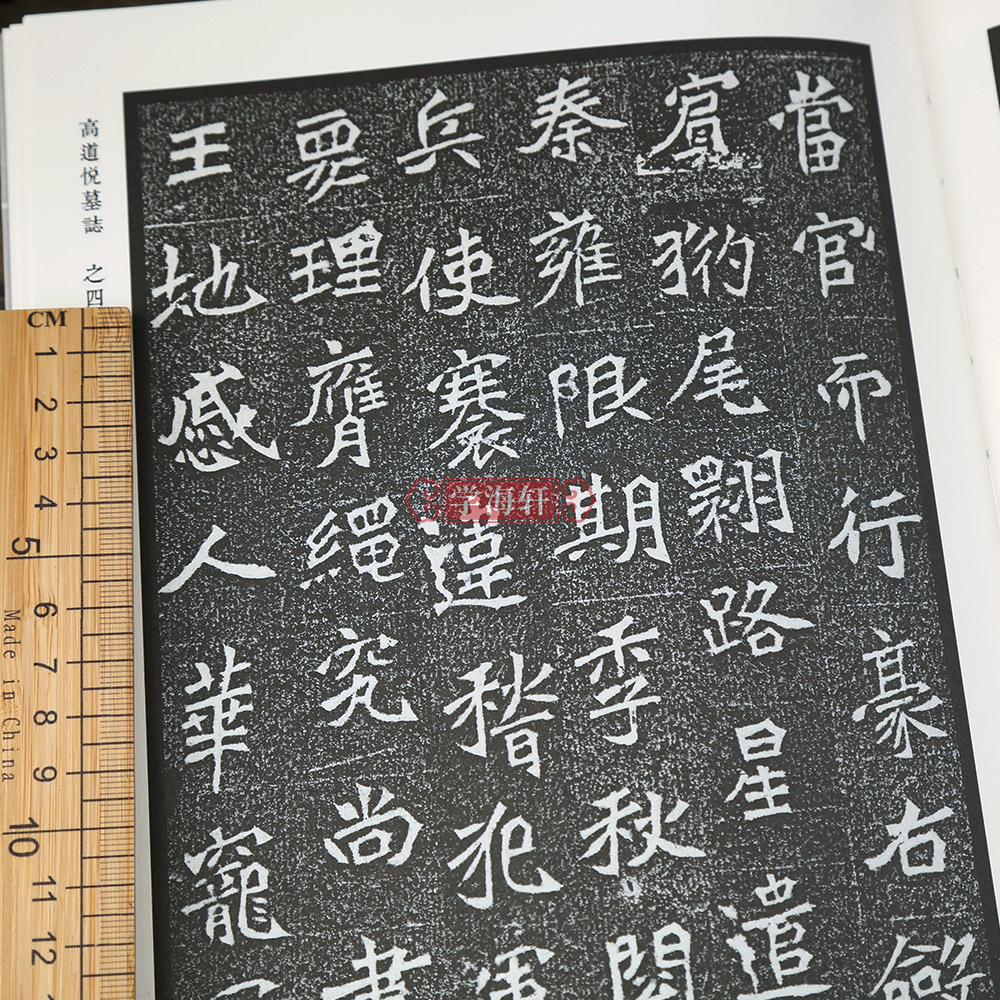 當官而行豪右
尾翾路星遣
秦雍限期季秋閱
兵使褰違稽犯軍
要理膺繩究尚書
王地感人華寵
高道悦墓誌 之四
学海轩
CM
1
2
3
4
5
6
7
8
9
10
11
12
Made in China